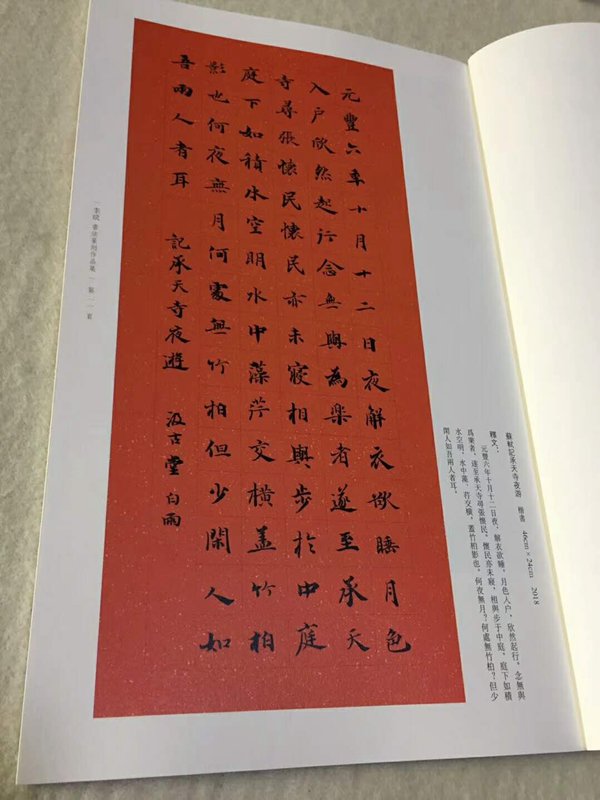 元豐六年十月十二日夜解衣欲睡月色
入户欣然起行念無與為樂者遂至承天
寺尋張懷民懷民亦未寢相與步於中庭
庭下如積水空明水中藻荇交橫蓋竹柏
影也何夜無月何處無竹柏但少閑人如
吾兩人者耳 記承天寺夜遊 汲古堂 白雨
蘇軾記承天寺夜游 楷書 46cm×24cm 2018
釋文：
元豐六年十月十二日夜，解衣欲睡，月色入户，欣然起行，念無與
爲樂者，遂至承天寺尋張懷民。懷民亦未寢，相與步于中庭。庭下如積
水空明，水中藻、荇交橫，蓋竹柏影也。何夜無月？何處無竹柏？但少
閑人如吾兩人者耳。
書法篆刻作品集